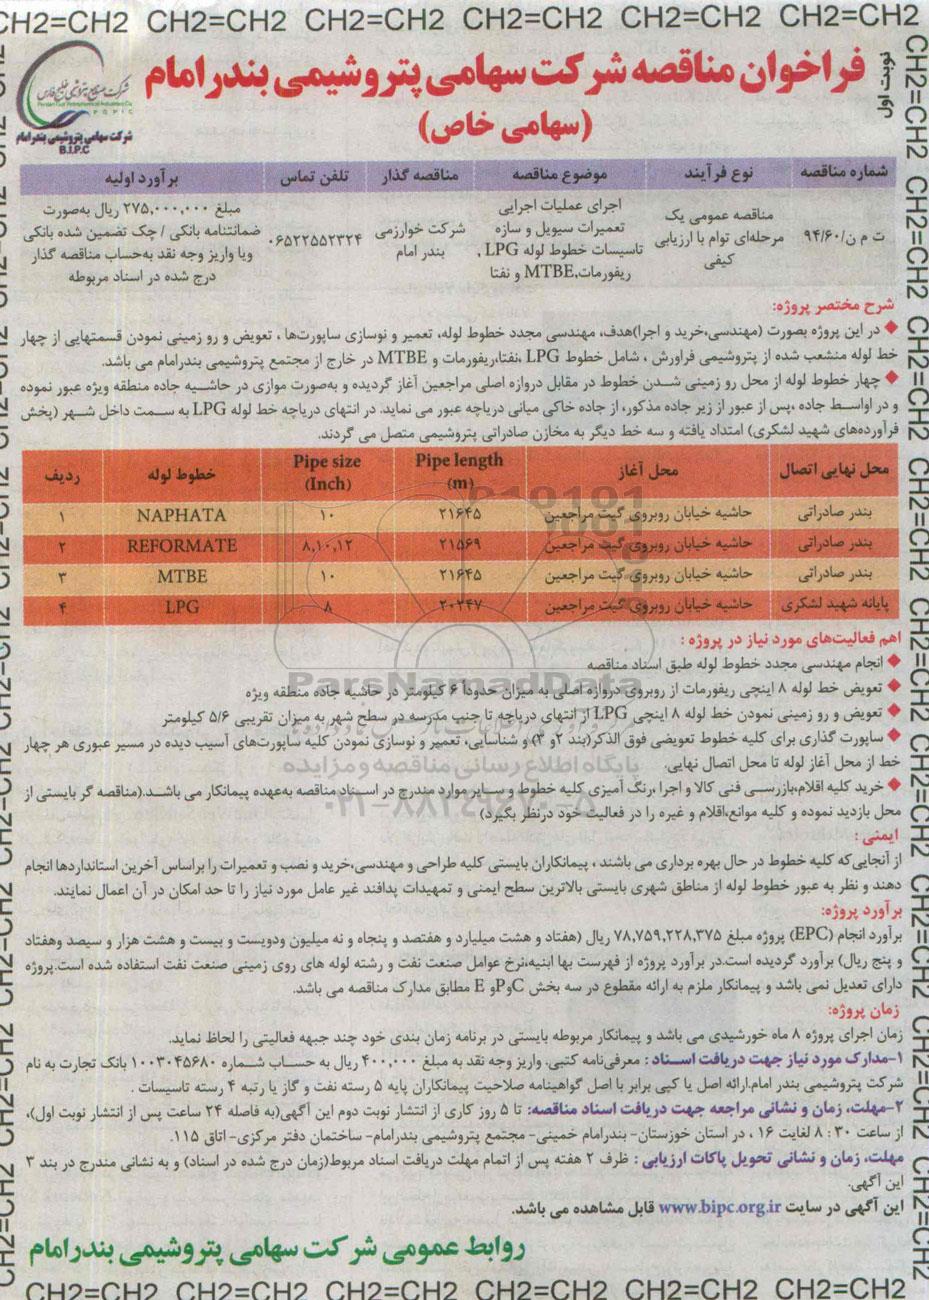 CH2=CH2 CH2=CH2 CH2=CH2 CH2=CH2 CH2=CH2 CH2=CH2
نوبت اول
فراخوان مناقصه شرکت سهامی پتروشیمی بندر امام
(سهامی خاص)
شرکت صنایع پتروشیمی خلیج فارس
Persian Gulf Petrochemical Industries Co
P G P I C
شرکت سهامی پتروشیمی بندر امام
B.I.P.C
شماره مناقصه | نوع فرآیند | موضوع مناقصه | مناقصه گذار | تلفن تماس | برآورد اولیه
ت م ن/۹۴/۶۰ | مناقصه عمومی یک مرحله‌ای توام با ارزیابی کیفی | اجرای عملیات اجرایی تعمیرات سیویل و سازه تاسیسات خطوط لوله LPG , ریفورمات,MTBE و نفتا | شرکت خوارزمی بندر امام | ۰۶۵۲۲۵۵۲۳۲۴ | مبلغ ۲۷۵,۰۰۰,۰۰۰ ریال به‌صورت ضمانتنامه بانکی / چک تضمین شده بانکی ویا واریز وجه نقد به‌حساب مناقصه گذار درج شده در اسناد مربوطه
شرح مختصر پروژه:
◆ در این پروژه بصورت (مهندسی،خرید و اجرا)هدف، مهندسی مجدد خطوط لوله، تعمیر و نوسازی ساپورت‌ها ، تعویض و رو زمینی نمودن قسمتهایی از چهار
خط لوله منشعب شده از پتروشیمی فراورش ، شامل خطوط LPG ،نفتا،ریفورمات و MTBE در خارج از مجتمع پتروشیمی بندرامام می باشد.
◆ چهار خطوط لوله از محل رو زمینی شــدن خطوط در مقابل دروازه اصلی مراجعین آغاز گردیده و به‌صورت موازی در حاشــیه جاده منطقه ویژه عبور نموده
و در اواســط جاده ،پس از عبور از زیر جاده مذکور، از جاده خاکی میانی دریاچه عبور می نماید. در انتهای دریاچه خط لوله LPG به سـمت داخل شــهر (پخش
فرآورده‌های شهید لشکری) امتداد یافته و سه خط دیگر به مخازن صادراتی پتروشیمی متصل می گردند.
محل نهایی اتصال | محل آغاز | Pipe length (m) | Pipe size (Inch) | خطوط لوله | ردیف
بندر صادراتی | حاشیه خیابان روبروی گیت مراجعین | ۲۱۶۴۵ | ۱۰ | NAPHATA | ۱
بندر صادراتی | حاشیه خیابان روبروی گیت مراجعین | ۲۱۵۶۹ | ۸,۱۰,۱۲ | REFORMATE | ۲
بندر صادراتی | حاشیه خیابان روبروی گیت مراجعین | ۲۱۶۴۵ | ۱۰ | MTBE | ۳
پایانه شهید لشکری | حاشیه خیابان روبروی گیت مراجعین | ۲۰۲۴۷ | ۸ | LPG | ۴
اهم فعالیت‌های مورد نیاز در پروژه :
◆ انجام مهندسی مجدد خطوط لوله طبق اسناد مناقصه
ParsNamadData
◆ تعویض خط لوله ۸ اینچی ریفورمات از روبروی دروازه اصلی به میزان حدوداً ۶ کیلومتر در حاشیه جاده منطقه ویژه
◆ تعویض و رو زمینی نمودن خط لوله ۸ اینچی LPG از انتهای دریاچه تا جنب مدرسه در سطح شهر به میزان تقریبی ۵/۶ کیلومتر
◆ ساپورت گذاری برای کلیه خطوط تعویضی فوق الذکر(بند ۲و ۳) و شناسایی، تعمیر و نوسازی نمودن کلیه ساپورت‌های آسیب دیده در مسیر عبوری هر چهار
خط از محل آغاز لوله تا محل اتصال نهایی.
پایگاه اطلاع رسانی مناقصه و مزایده
◆ خرید کلیه اقلام،بازرســی فنی کالا و اجرا ،رنگ آمیزی کلیه خطوط و ســایر موارد مندرج در اســناد مناقصه به‌عهده پیمانکار می باشــد.(مناقصه گر بایستی از
۰۲۱-۸۸۳۴۹۶۷۰-۵
محل بازدید نموده و کلیه موانع،اقلام و غیره را در فعالیت خود درنظر بگیرد)
ایمنی :
از آنجایی‌که کلیه خطوط در حال بهره برداری می باشند ، پیمانکاران بایستی کلیه طراحی و مهندسی،خرید و نصب و تعمیرات را براساس آخرین استانداردها انجام
دهند و نظر به عبور خطوط لوله از مناطق شهری بایستی بالاترین سطح ایمنی و تمهیدات پدافند غیر عامل مورد نیاز را تا حد امکان در آن اعمال نمایند.
برآورد پروژه:
برآورد انجام (EPC) پروژه مبلغ ۷۸,۷۵۹,۲۲۸,۳۷۵ ریال (هفتاد و هشت میلیارد و هفتصد و پنجاه و نه میلیون ودویست و بیست و هشت هزار و سیصد وهفتاد
و پنج ریال) برآورد گردیده است.در برآورد پروژه از فهرست بها ابنیه،نرخ عوامل صنعت نفت و رشته لوله های روی زمینی صنعت نفت استفاده شده است.پروژه
دارای تعدیل نمی باشد و پیمانکار ملزم به ارائه مقطوع در سه بخش CوPو E مطابق مدارک مناقصه می باشد.
زمان پروژه:
زمان اجرای پروژه ۸ ماه خورشیدی می باشد و پیمانکار مربوطه بایستی در برنامه زمان بندی خود چند جبهه فعالیتی را لحاظ نماید.
۱-مدارک مورد نیاز جهت دریافت اســناد : معرفی‌نامه کتبی، واریز وجه نقد به مبلغ ۴۰۰,۰۰۰ ریال به حســاب شــماره ۱۰۰۳۰۴۵۶۸۰ بانک تجارت به نام
شرکت پتروشیمی بندر امام.ارائه اصل یا کپی برابر با اصل گواهینامه صلاحیت پیمانکاران پایه ۵ رسته نفت و گاز یا رتبه ۴ رسته تاسیسات .
۲-مهلت، زمان و نشانی مراجعه جهت دریافت اسناد مناقصه: تا ۵ روز کاری از انتشار نوبت دوم این آگهی(به فاصله ۲۴ ساعت پس از انتشار نوبت اول)،
از ساعت ۳۰ : ۸ لغایت ۱۶ ، در استان خوزستان- بندرامام خمینی- مجتمع پتروشیمی بندرامام- ساختمان دفتر مرکزی- اتاق ۱۱۵.
مهلت، زمان و نشانی تحویل پاکات ارزیابی : ظرف ۲ هفته پس از اتمام مهلت دریافت اسناد مربوط(زمان درج شده در اسناد) و به نشانی مندرج در بند ۳
این آگهی.
این آگهی در سایت www.bipc.org.ir قابل مشاهده می باشد.
روابط عمومی شرکت سهامی پتروشیمی بندر امام
CH2=CH2 CH2=CH2 CH2=CH2 CH2=CH2 CH2=CH2 CH2=CH2